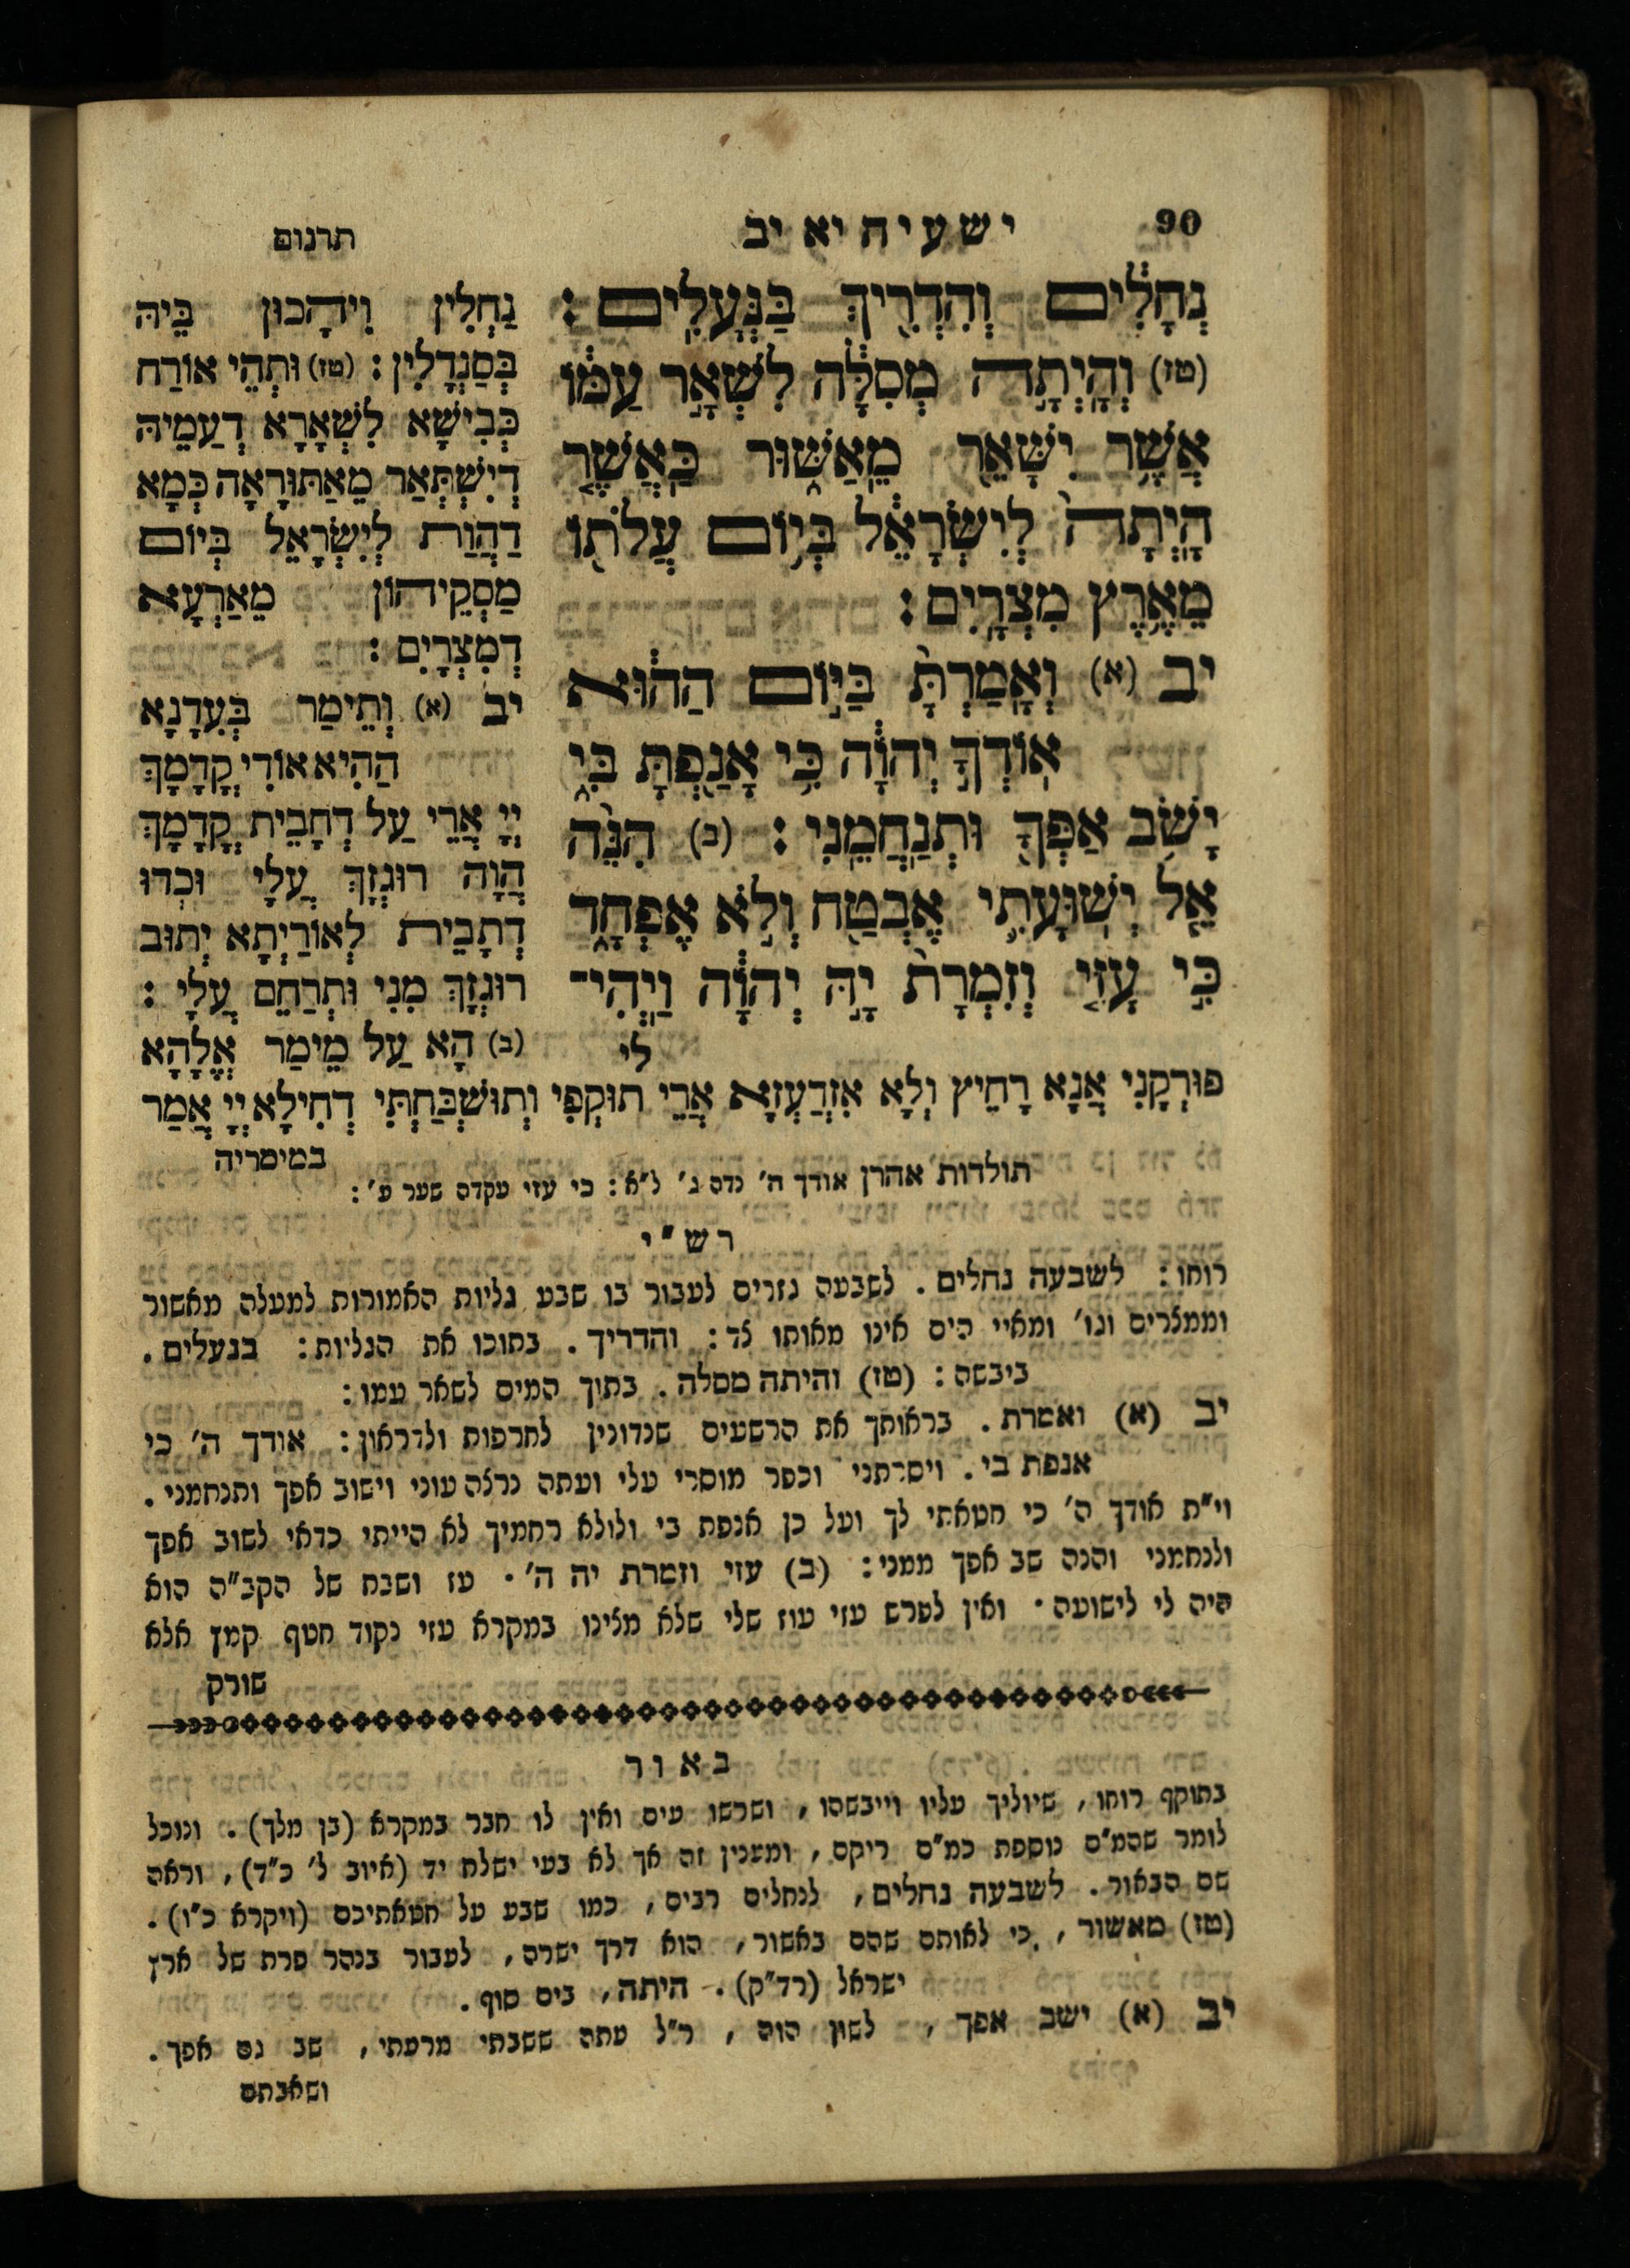 90
ישעיה יא יב
תרגום
נְחָלִ֔ים וְהִדְרִ֖יךְ בַּנְּעָלִֽים׃
(טז) וְהָיְתָ֣ה מְסִלָּ֔ה לִשְׁאָ֣ר עַמּ֔וֹ
אֲשֶׁ֥ר יִשָּׁאֵ֖ר מֵֽאַשּׁ֑וּר כַּֽאֲשֶׁ֤ר
הָֽיְתָה֙ לְיִשְׂרָאֵ֔ל בְּי֥וֹם עֲלֹת֖וֹ
מֵאֶ֥רֶץ מִצְרָֽיִם׃
יב (א) וְאָֽמַרְתָּ֙ בַּיּ֣וֹם הַה֔וּא
אֽוֹדְךָ֣ יְהֹוָ֔ה כִּ֥י אָנַ֖פְתָּ בִּ֑י
יָשֹׁ֥ב אַפְּךָ֖ וּתְנַֽחֲמֵֽנִי׃ (ב) הִנֵּ֨ה
אֵ֧ל יְשֽׁוּעָתִ֛י אֶבְטַ֖ח וְלֹ֣א אֶפְחָ֑ד
כִּ֣י עָזִּ֤י וְזִמְרָת֙ יָ֣הּ יְהֹוָ֔ה וַֽיְהִי־
לִי
נַחְלִין וִיהָכוּן בֵּיהּ
בְּסַנְדָלִין׃ (טז) וּתְהֵי אוֹרַח
כְּבִישָׁא לִשְׁאָרָא דְעַמֵיהּ
דְיִשְׁתְּאַר מֵאַתּוּרָאָה כְּמָא
דַהֲוַת לְיִשְׂרָאֵל בְּיוֹם
מַסְקֵיהוֹן מֵאַרְעָא
דְמִצְרָיִם׃
יב (א) וְתֵימַר בְּעִדָנָא
הַהִיא אוֹדִי קֳדָמָךְ
יְיָ אֲרֵי עַל דְחָבֵית קֳדָמָךְ
הֲוָה רוּגְזָךְ עֲלָי וּכְדוּ
דְתָבֵית לְאוֹרַיְתָא יְתוּב
רוּגְזָךְ מִנִי וּתְרַחֵם עֲלָי׃
(ב) הָא עַל מֵימַר אֱלָהָא
פוּרְקָנִי אֲנָא רָחֵיץ וְלָא אִזְדַעְזָא אֲרֵי תוּקְפִי וְתוּשְׁבַּחְתִּי דְחִילָא יְיָ אֲמַר
במימריה
תולדות אהרן אודך ה׳ נדה ג׳ ל״א: כי עזי עקדה שער ע׳:
רש״י
רוחו: לשבעה נחלים. לשבעה גזרים לעבור בו שבע גליות האמורות למעלה מאשור
וממצרים וגו׳ ומאיי הים אינו מאותו צד: והדריך. בתוכו את הגליות: בנעלים.
ביבשה: (טז) והיתה מסלה. בתוך המים לשאר עמו:
יב (א) ואמרת. בראותך את הרשעים שנדונין לחרפות ולדראון: אודך ה׳ כי
אנפת בי. ויסרתני וכפר מוסרי עלי ועתה נרצה עוני וישוב אפך ותנחמני.
וי״ת אודך ה׳ כי חטאתי לך ועל כן אנפת בי ולולא רחמיך לא הייתי כדאי לשוב אפך
ולנחמני והנה שב אפך ממני: (ב) עזי וזמרת יה ה׳. עז ושבח של הקב״ה הוא
היה לי לישועה. ואין לפרש עזי עוז שלי שלא מצינו במקרא עזי נקוד חטף קמץ אלא
שורק
באור
בתוקף רוחו, שיוליך עליו וייבשהו, ושרשו עים ואין לו חבר במקרא (בן מלך). ונוכל
לומר שהמ״ם נוספת כמ״ם ריקם, ומענין זה אך לא בעי ישלח יד (איוב ל׳ כ״ד), וראה
שם הבאור. לשבעה נחלים, לנחלים רבים, כמו שבע על חטאתיכם (ויקרא כ״ו).
(טז) מאשור, כי לאותם שהם באשור, הוא דרך ישרה, לעבור בנהר פרת של ארץ
ישראל (רד״ק). היתה, בים סוף.
יב (א) ישב אפך, לשון הוה, ר״ל עתה ששבתי מרעתי, שב גם אפך.
ושאבתם